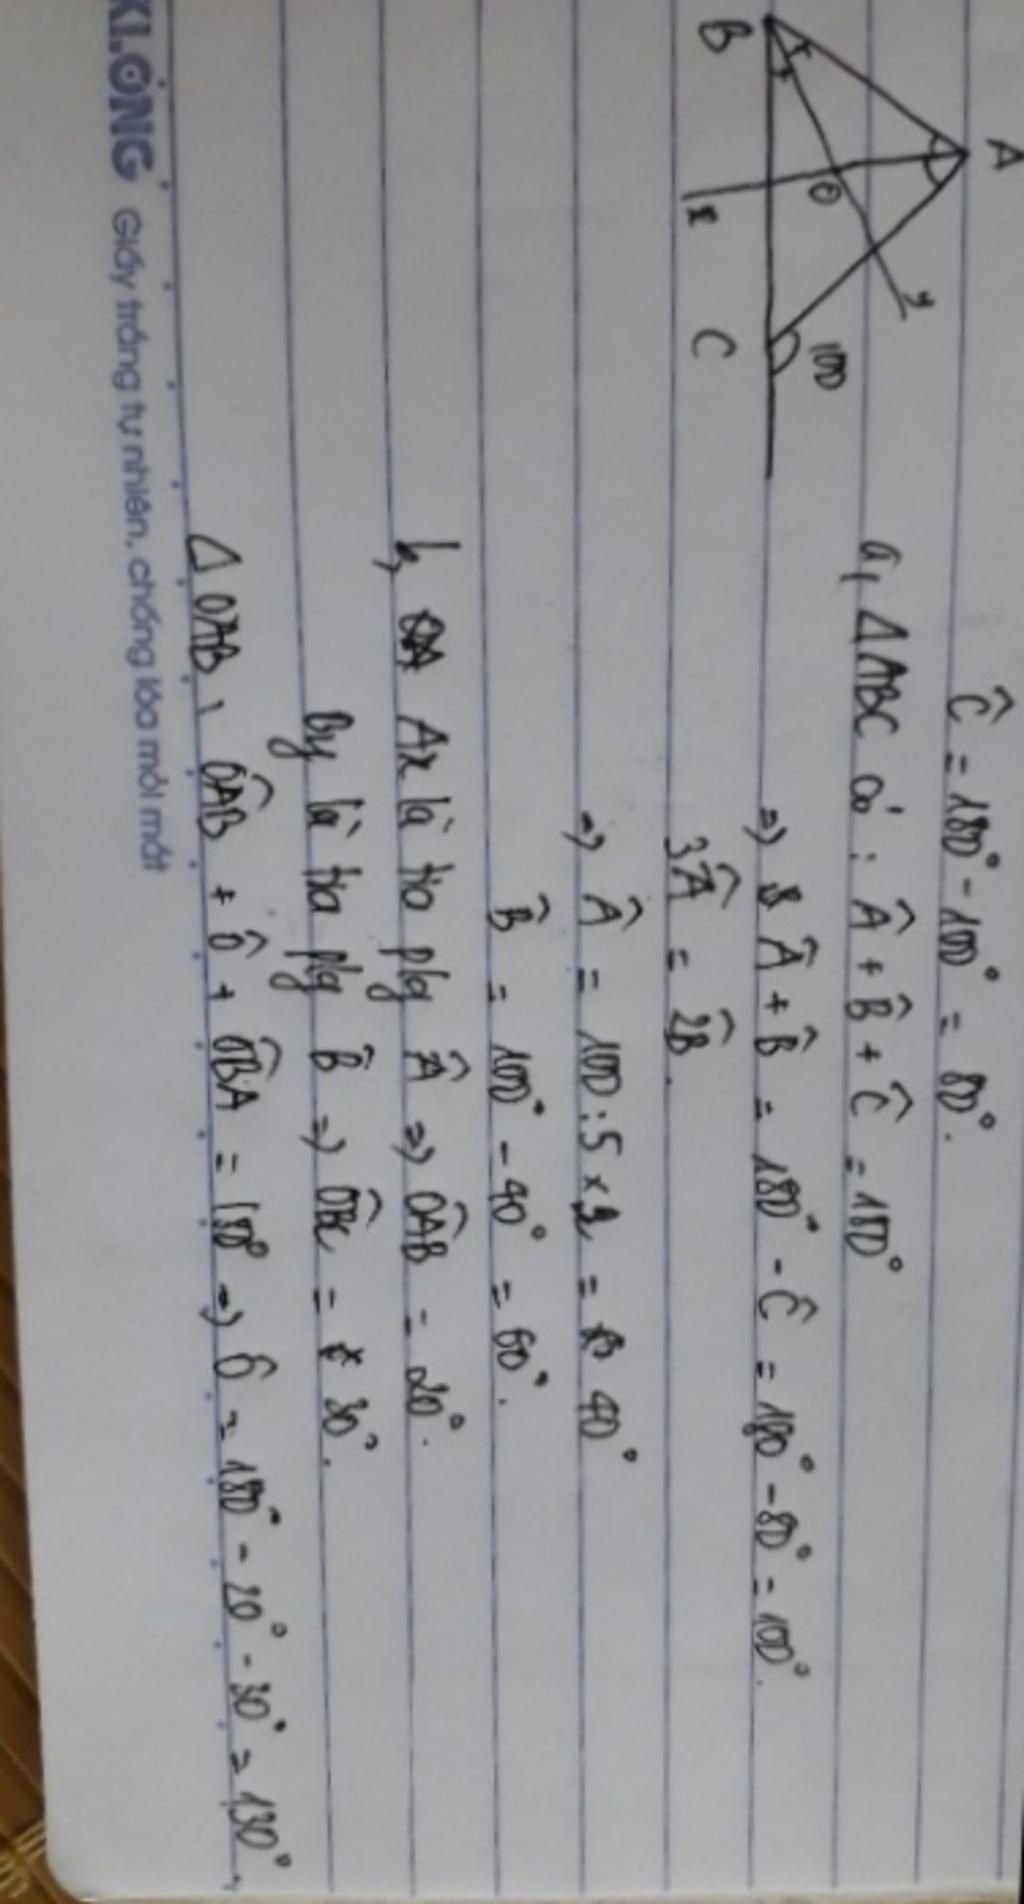 A
B
C
O
x
y
100
Ĉ = 180° - 100° = 80°.
a, ΔABC có : Â + B̂ + Ĉ = 180°
=> Â + B̂ = 180° - Ĉ = 180° - 80° = 100°.
3Â = 2B̂.
=> Â = 100 : 5 x 2 = 40°
B̂ = 100° - 40° = 60°.
b, Ax là tia p/g Â => OÂB = 20°.
By là tia p/g B̂ => OB̂C = 30°.
Δ OAB, OÂB + Ô + OB̂A = 180° => Ô = 180° - 20° - 30° = 130°,
KLONG Giấy trắng tự nhiên, chống lóa mỏi mắt